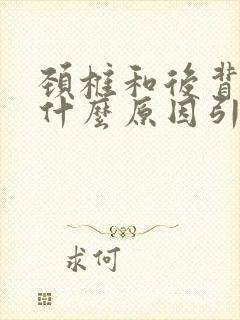 頸椎和後背
什麼原因引
求何